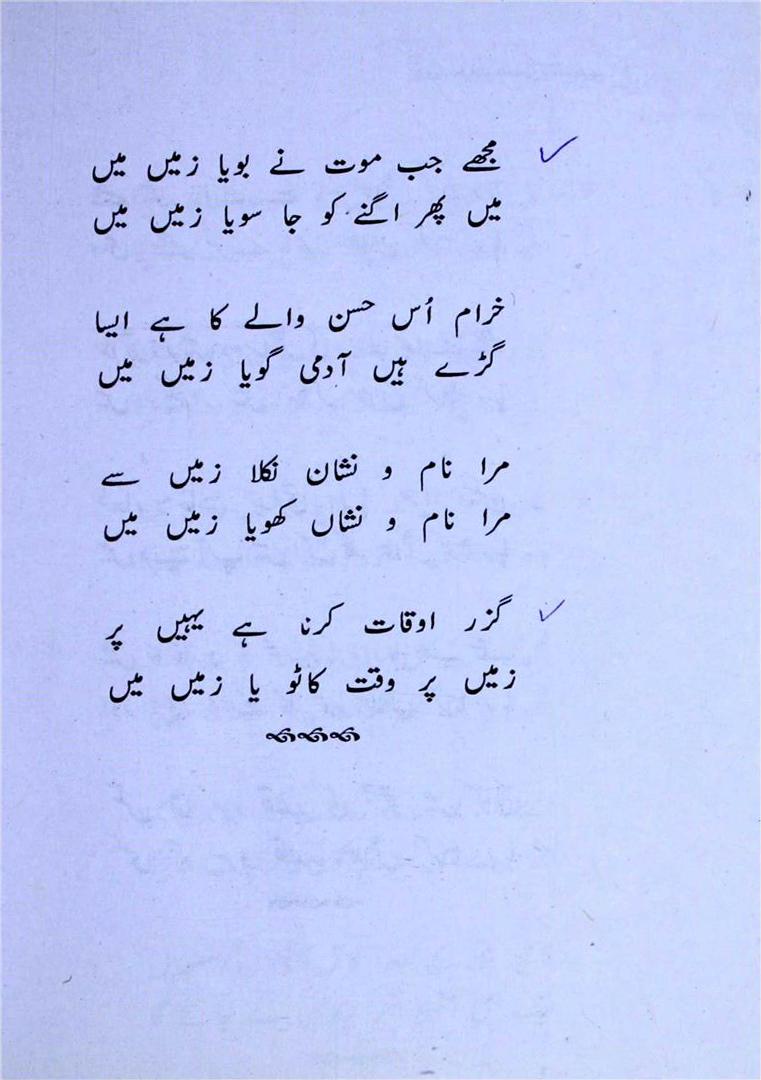 مجھے جب موت نے بویا زمیں میں
میں پھر اگنے کو جا سویا زمیں میں
خرام اُس حسن والے کا ہے ایسا
گڑے ہیں آدمی گویا زمیں میں
مرا نام و نشان نکلا زمیں سے
مرا نام و نشاں کھویا زمیں میں
گزر اوقات کرنا ہے یہیں پر
زمیں پر وقت کاٹو یا زمیں میں